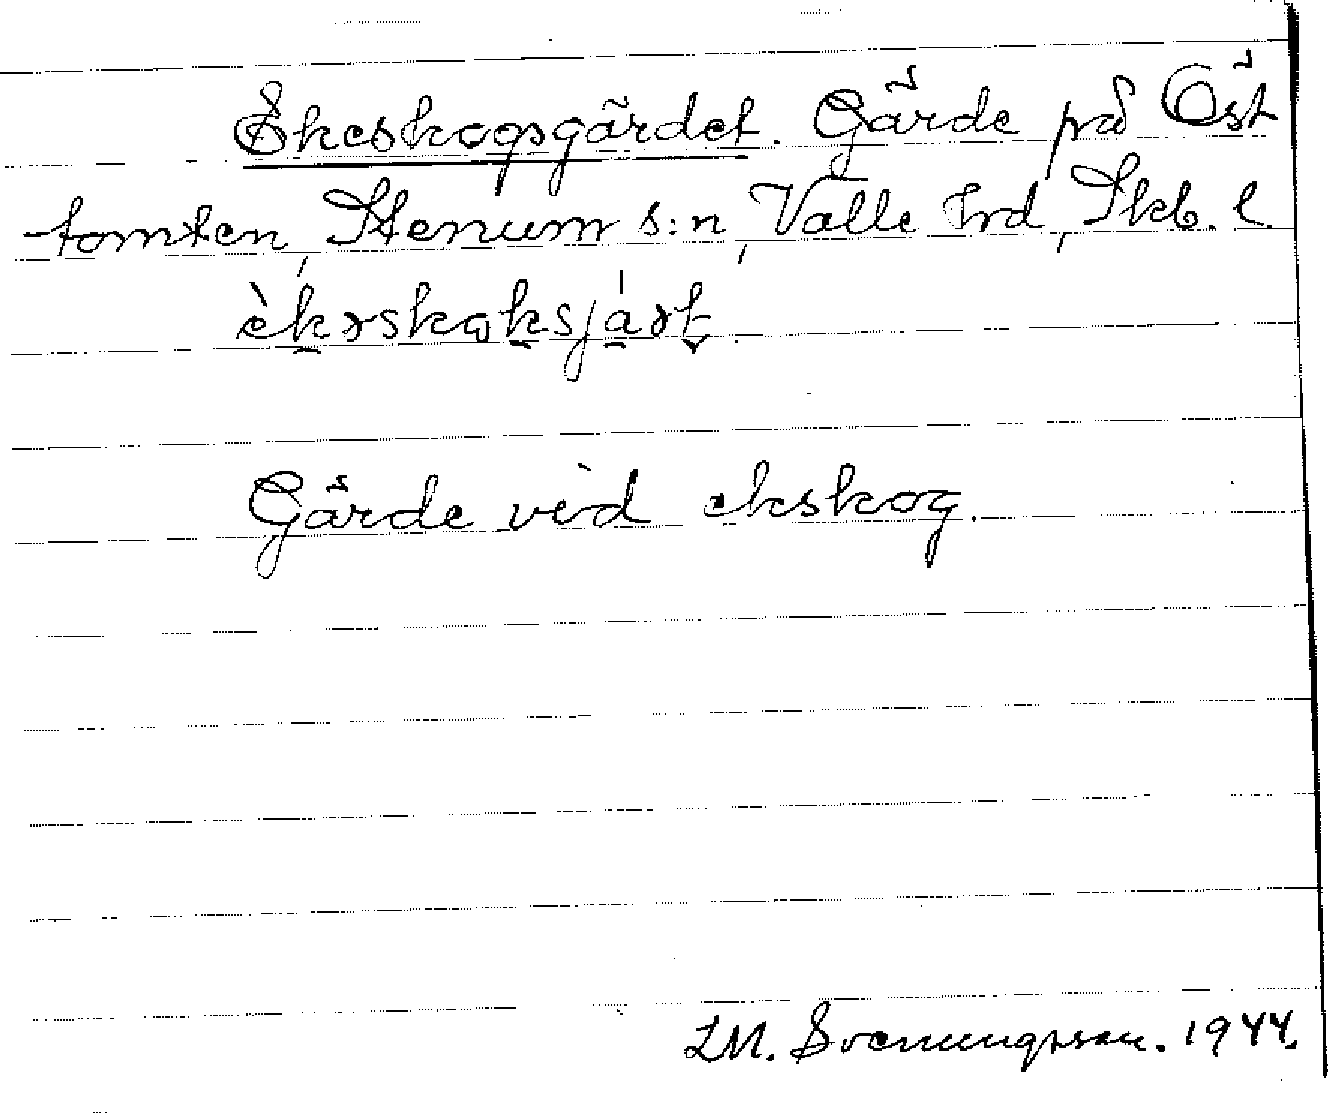 Ekeskogsgärdet. Gärde på Öst
tomten, Stenum s:n, Valle hrd, Skb. l.
èkɤskɷksjáɤt
Gärde vid ekskog.
LM. Svenungsson. 1944.